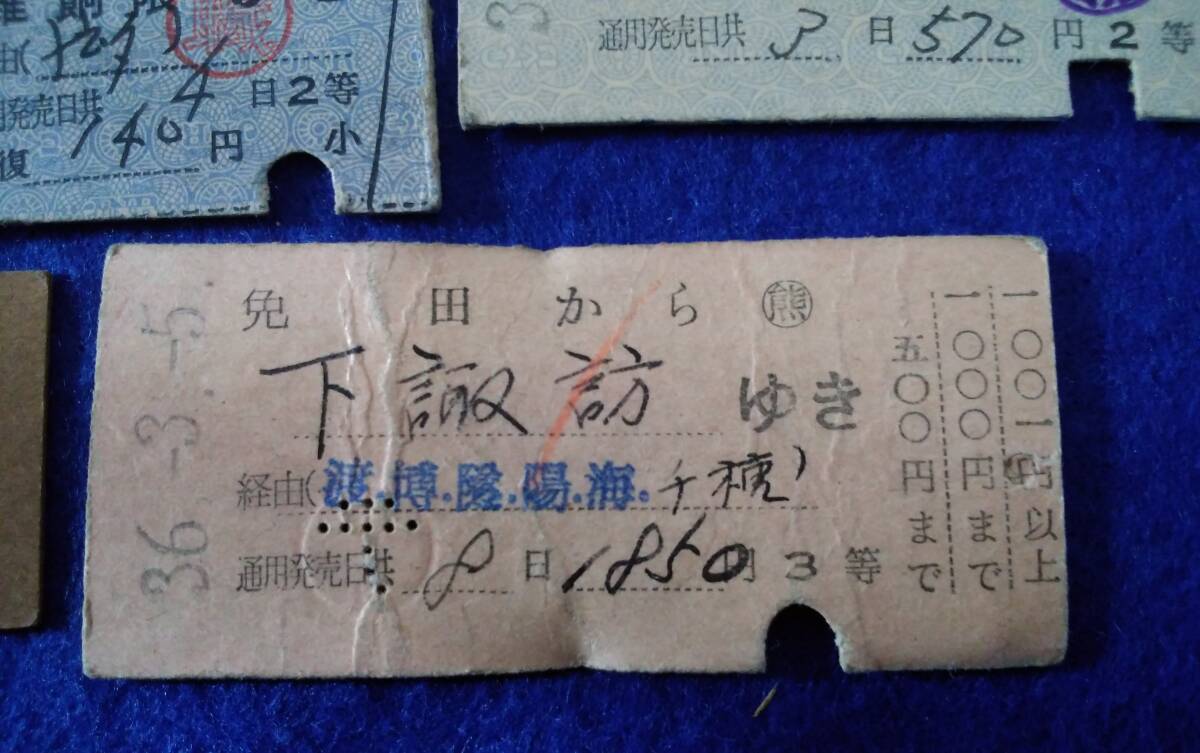 日2等
140円 小
復
通用発売日共 3 日 570 円 2 等
36.-3.-5.
免田から ㊇
下諏訪 ゆき
経由(渡.博.隆.陽.海.千穂)
通用発売日共 8 日 1850円 3 等
五〇〇円まで
一〇〇〇円まで
一〇〇一円以上